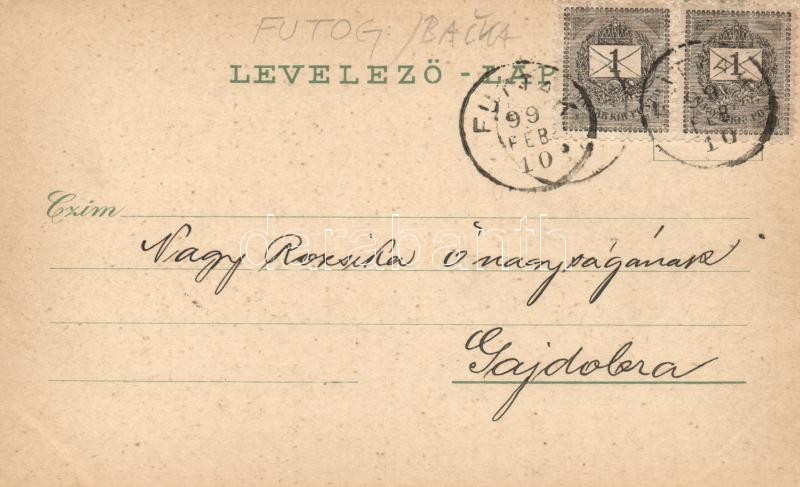 FUTOG /BAČKA
LEVELEZŐ-LAP
1
1
FUTAK
99
FEB.
10
FUTAK
99
FEB.
10
Czim
Nagy Rozsika őnagyságának
Gajdobra
darabanth